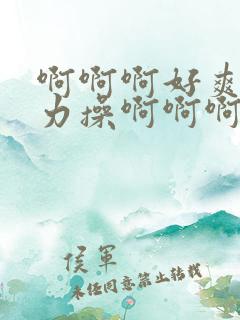 啊啊啊好爽
力操啊啊啊
侯军
未经同意禁止转载